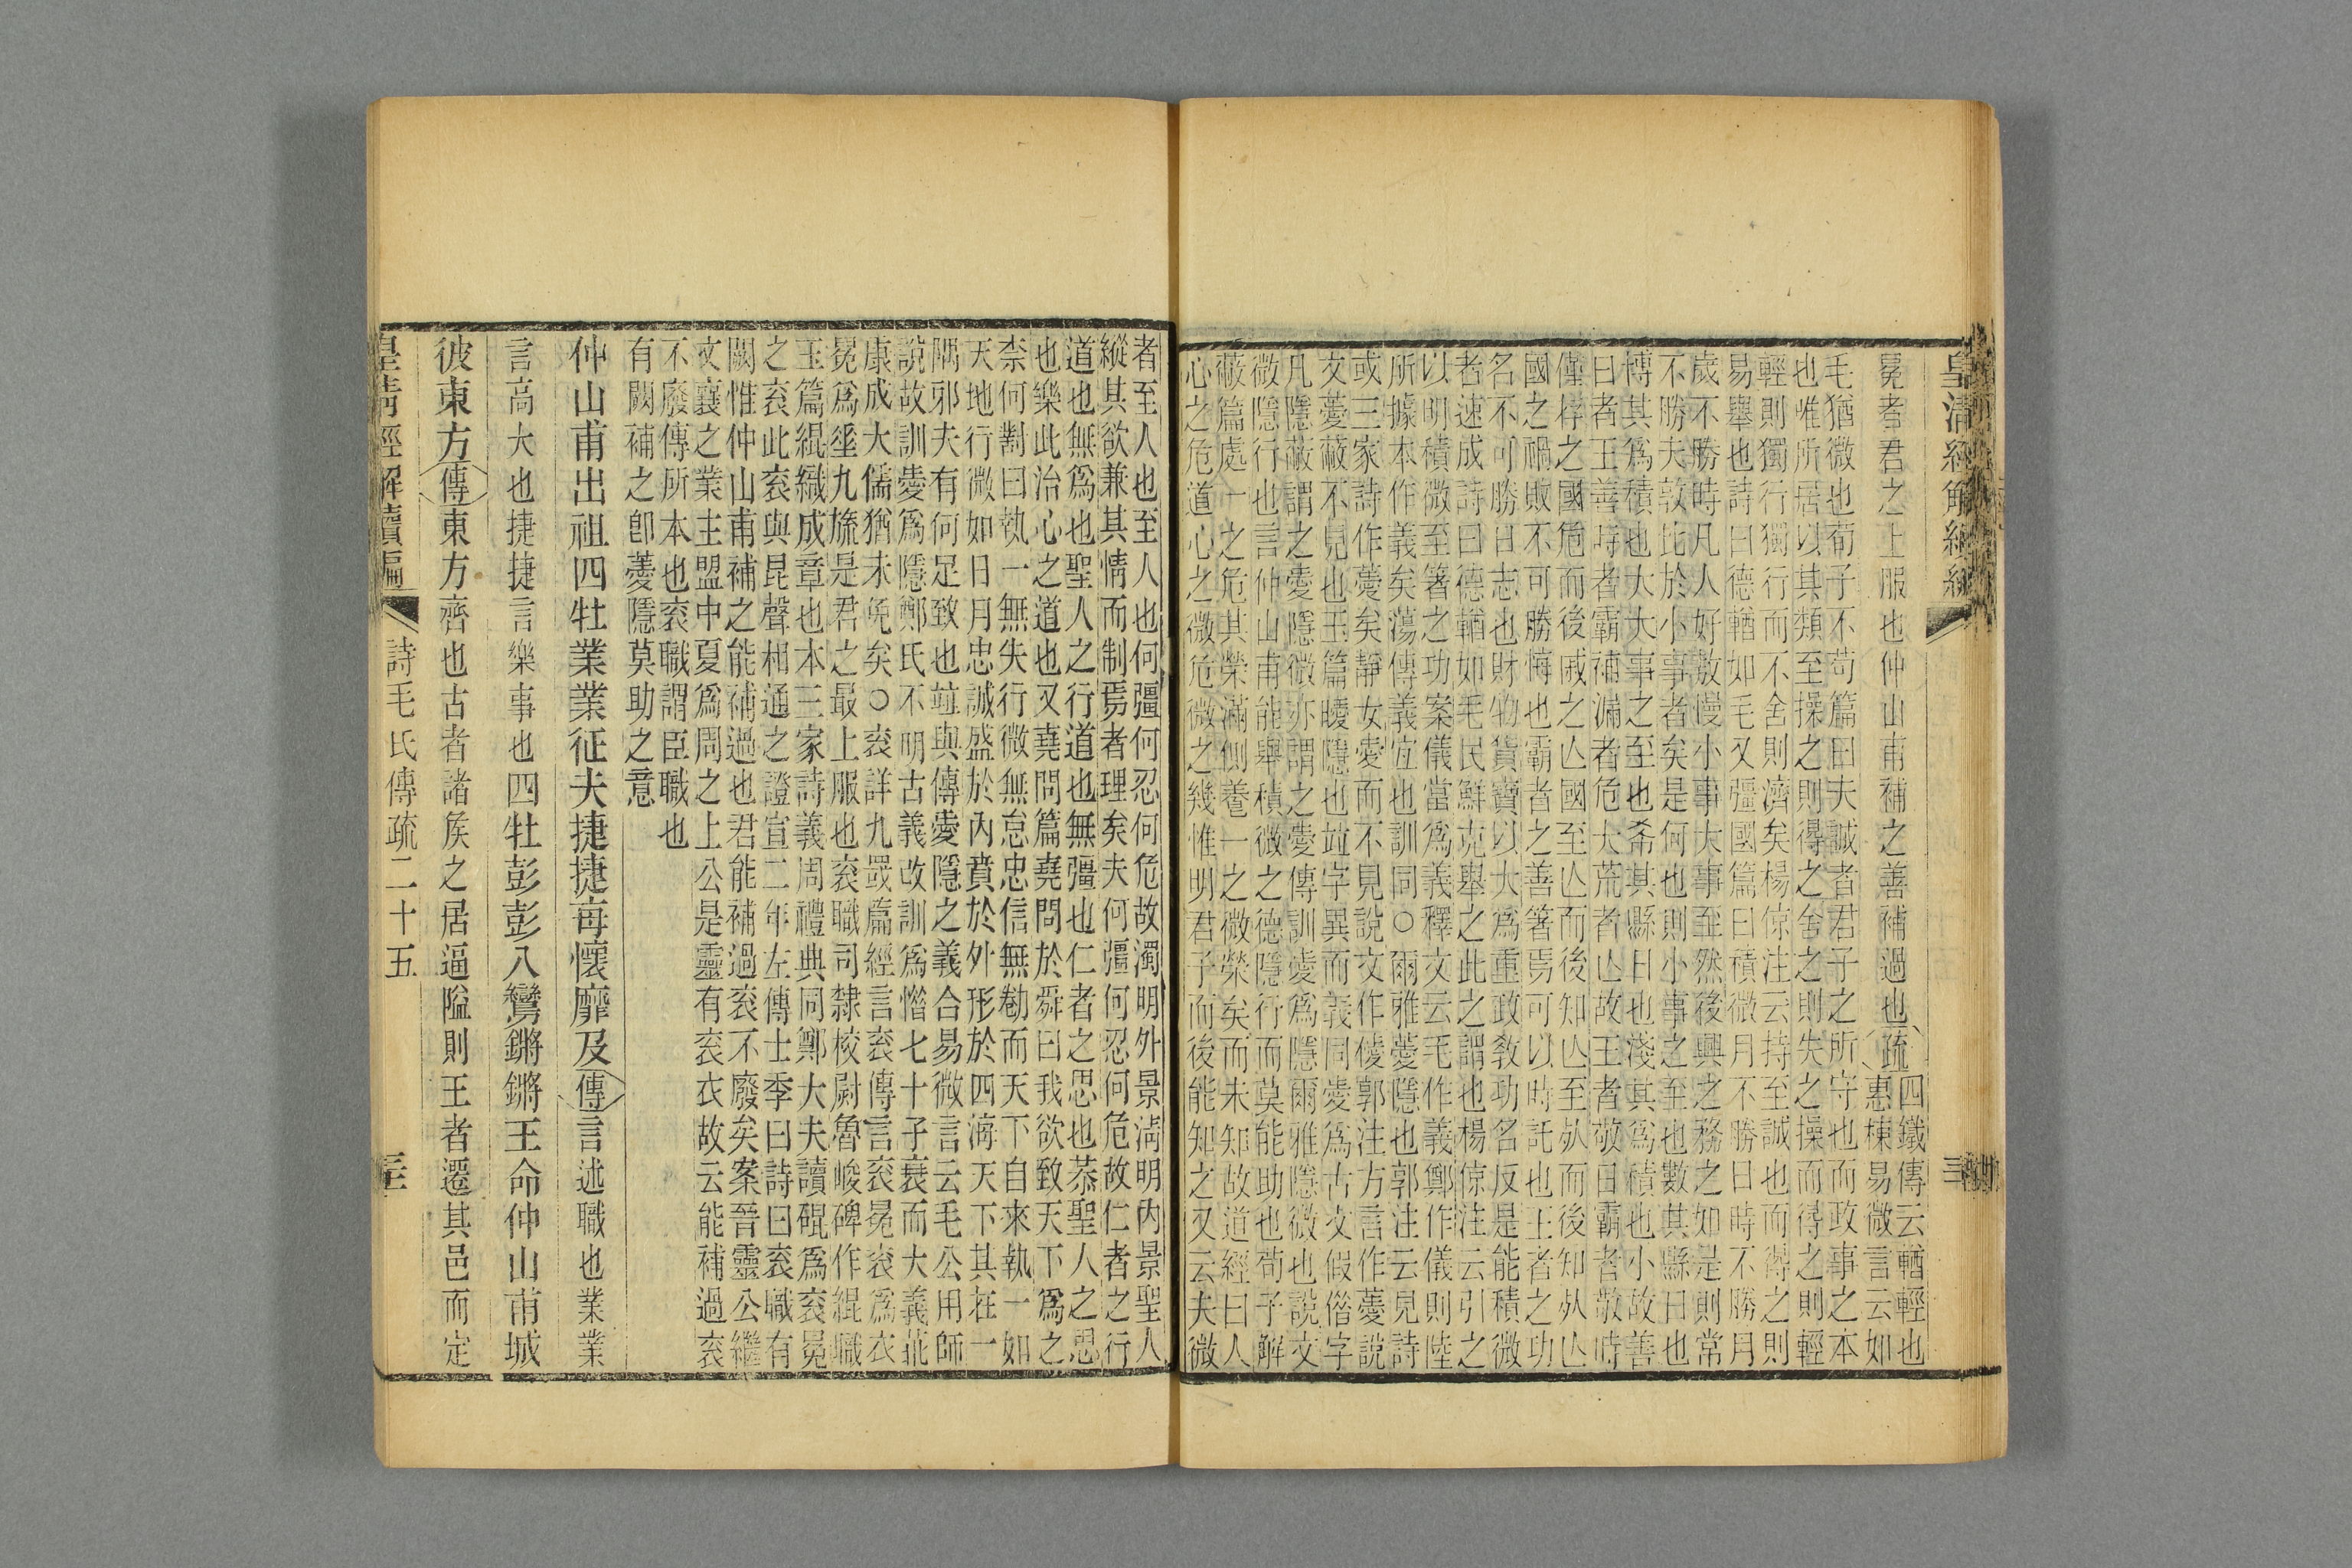 皇清經解續編
冕者君之上服也仲山甫補之善補過也疏四鐵傳云輶輕也
惠棟易微言云如
毛猶微也荀子不苟篇曰夫誠者君子之所守也而政事之本
也唯所居以其類至操之則得之舍之則失之操而得之則輕
輕則獨行獨行而不舍則濟矣楊倞注云持至誠也而得之則
易舉也詩曰德輶如毛又彊國篇曰積微月不勝日時不勝月
歲不勝時凡人好敖慢小事大事至然後興之務之如是則常
不勝夫敦比於小事者矣是何也則小事之至也數其縣日也
博其為積也大大事之至也希其縣日也淺其為積也小故善
日者王善時者霸補漏者危大荒者亾故王者敬日霸者敬時
僅存之國危而後戚之亾國至亾而後知亾至死而後知死亾
國之禍敗不可勝悔也霸者之善箸焉可以時託也王者之功
名不可勝日志也財物貨寶以大為重政敎功名反是能積微
者速成詩曰德輶如毛民鮮克舉之此之謂也楊倞注云引之
以明積微至箸之功案儀當為義釋文云毛作義鄭作儀則陸
所據本作義矣蕩傳義宜也訓同○爾雅薆隱也郭注云見詩
或三家詩作薆矣靜女愛而不見說文作僾郭注方言作薆說
文薆蔽不見也玉篇曖隱也竝字異而義同愛為古文假借字
凡隱蔽謂之愛隱微亦謂之愛傳訓愛為隱爾雅隱微也說文
微隱行也言仲山甫能舉積微之德隱行而莫能助也荀子解
蔽篇處一之危其榮滿側養一之微榮矣而未知故道經曰人
心之危道心之微危微之幾惟明君子而後能知之又云夫微
者至人也至人也何彊何忍何危故濁明外景淸明內景聖人
縱其欲兼其情而制焉者理矣夫何彊何忍何危故仁者之行
道也無為也聖人之行道也無彊也仁者之思也恭聖人之思
也樂此治心之道也又堯問篇堯問於舜曰我欲致天下為之
柰何對曰執一無失行微無怠忠信無勌而天下自來執一如
天地行微如日月忠誠盛於內賁於外形於四海天下其在一
隅邪夫有何足致也竝與傳愛隱之義合易微言云毛公用師
說故訓愛為隱鄭氏不明古義改訓為惜七十子衰而大義乖
康成大儒猶未免矣○衮詳九罭篇經言衮傳言衮冕衮為衣
冕為垂九旒是君之最上服也衮職司隸校尉魯峻碑作緄職
玉篇緄織成章也本三家詩義周禮典同鄭大夫讀硍為衮冕
之衮此衮與昆聲相通之證宣二年左傳士季曰詩曰衮職有
闕惟仲山甫補之能補過也君能補過衮不廢矣案晉靈公繼
文襄之業主盟中夏為周之上公是靈有衮衣故云能補過衮
不廢傳所本也衮職謂臣職也
有闕補之卽薆隱莫助之意
仲山甫出祖四牡業業征夫捷捷每懷靡及傳言述職也業業
言高大也捷捷言樂事也四牡彭彭八鸞鏘鏘王命仲山甫城
彼東方傳東方齊也古者諸侯之居逼隘則王者遷其邑而定
皇清經解續編 詩毛氏傳疏二十五